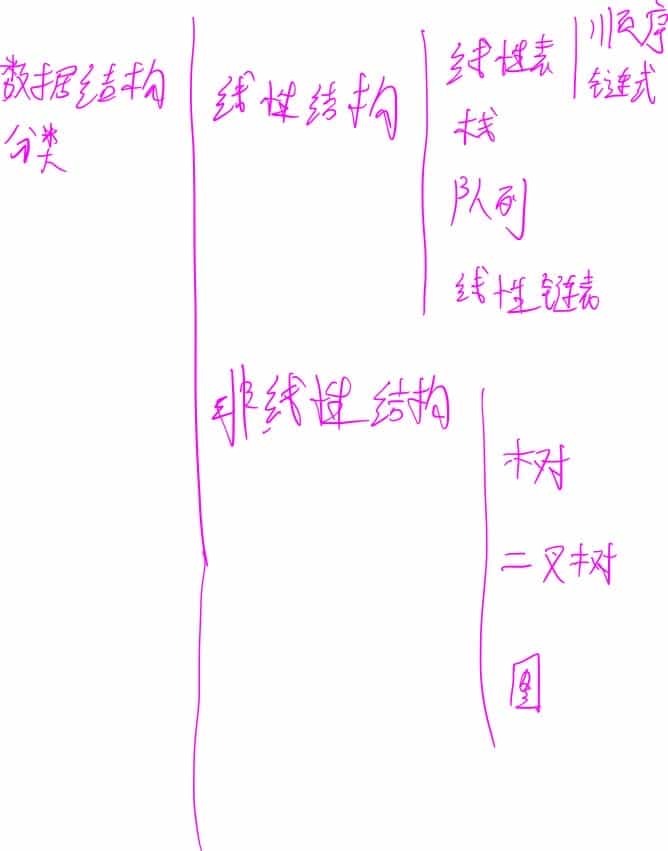 数据结构
分类
线性结构
线性表
顺序
链式
栈
队列
线性链表
非线性结构
树
二叉树
图